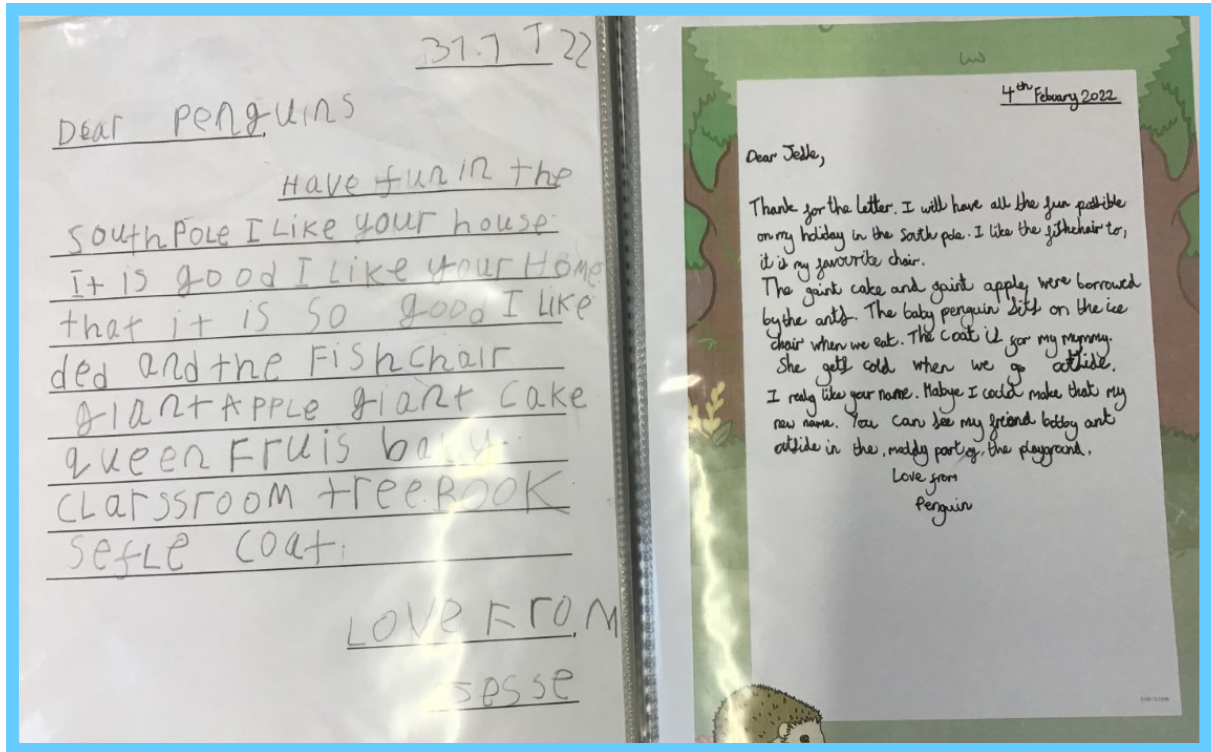 31.1 T 22
Dear Penguins
Have fun in the
South Pole I Like your house
It is good I Like your Home
that it is so good I Like
ded and the Fish chair
giant APPLe giant cake
queen Fruis
CLarssroom tree.BOOK
sefLe coat.
LOVe From
Jesse
4th Febuary 2022
Dear Jesse,
Thank for the letter. I will have all the fun possible
on my holiday in the south pole. I like the fishchair to,
it is my favourite chair.
The gaint cake and gaint apple were borrowed
by the ants. The baby penguin sits on the ice
chair when we eat. The coat is for my mummy.
She gets cold when we go outside.
I realy like your name. Mabye I could make that my
new name. You can see my friend bobby ant
outside in the muddy part of the playground.
Love from
Penguin